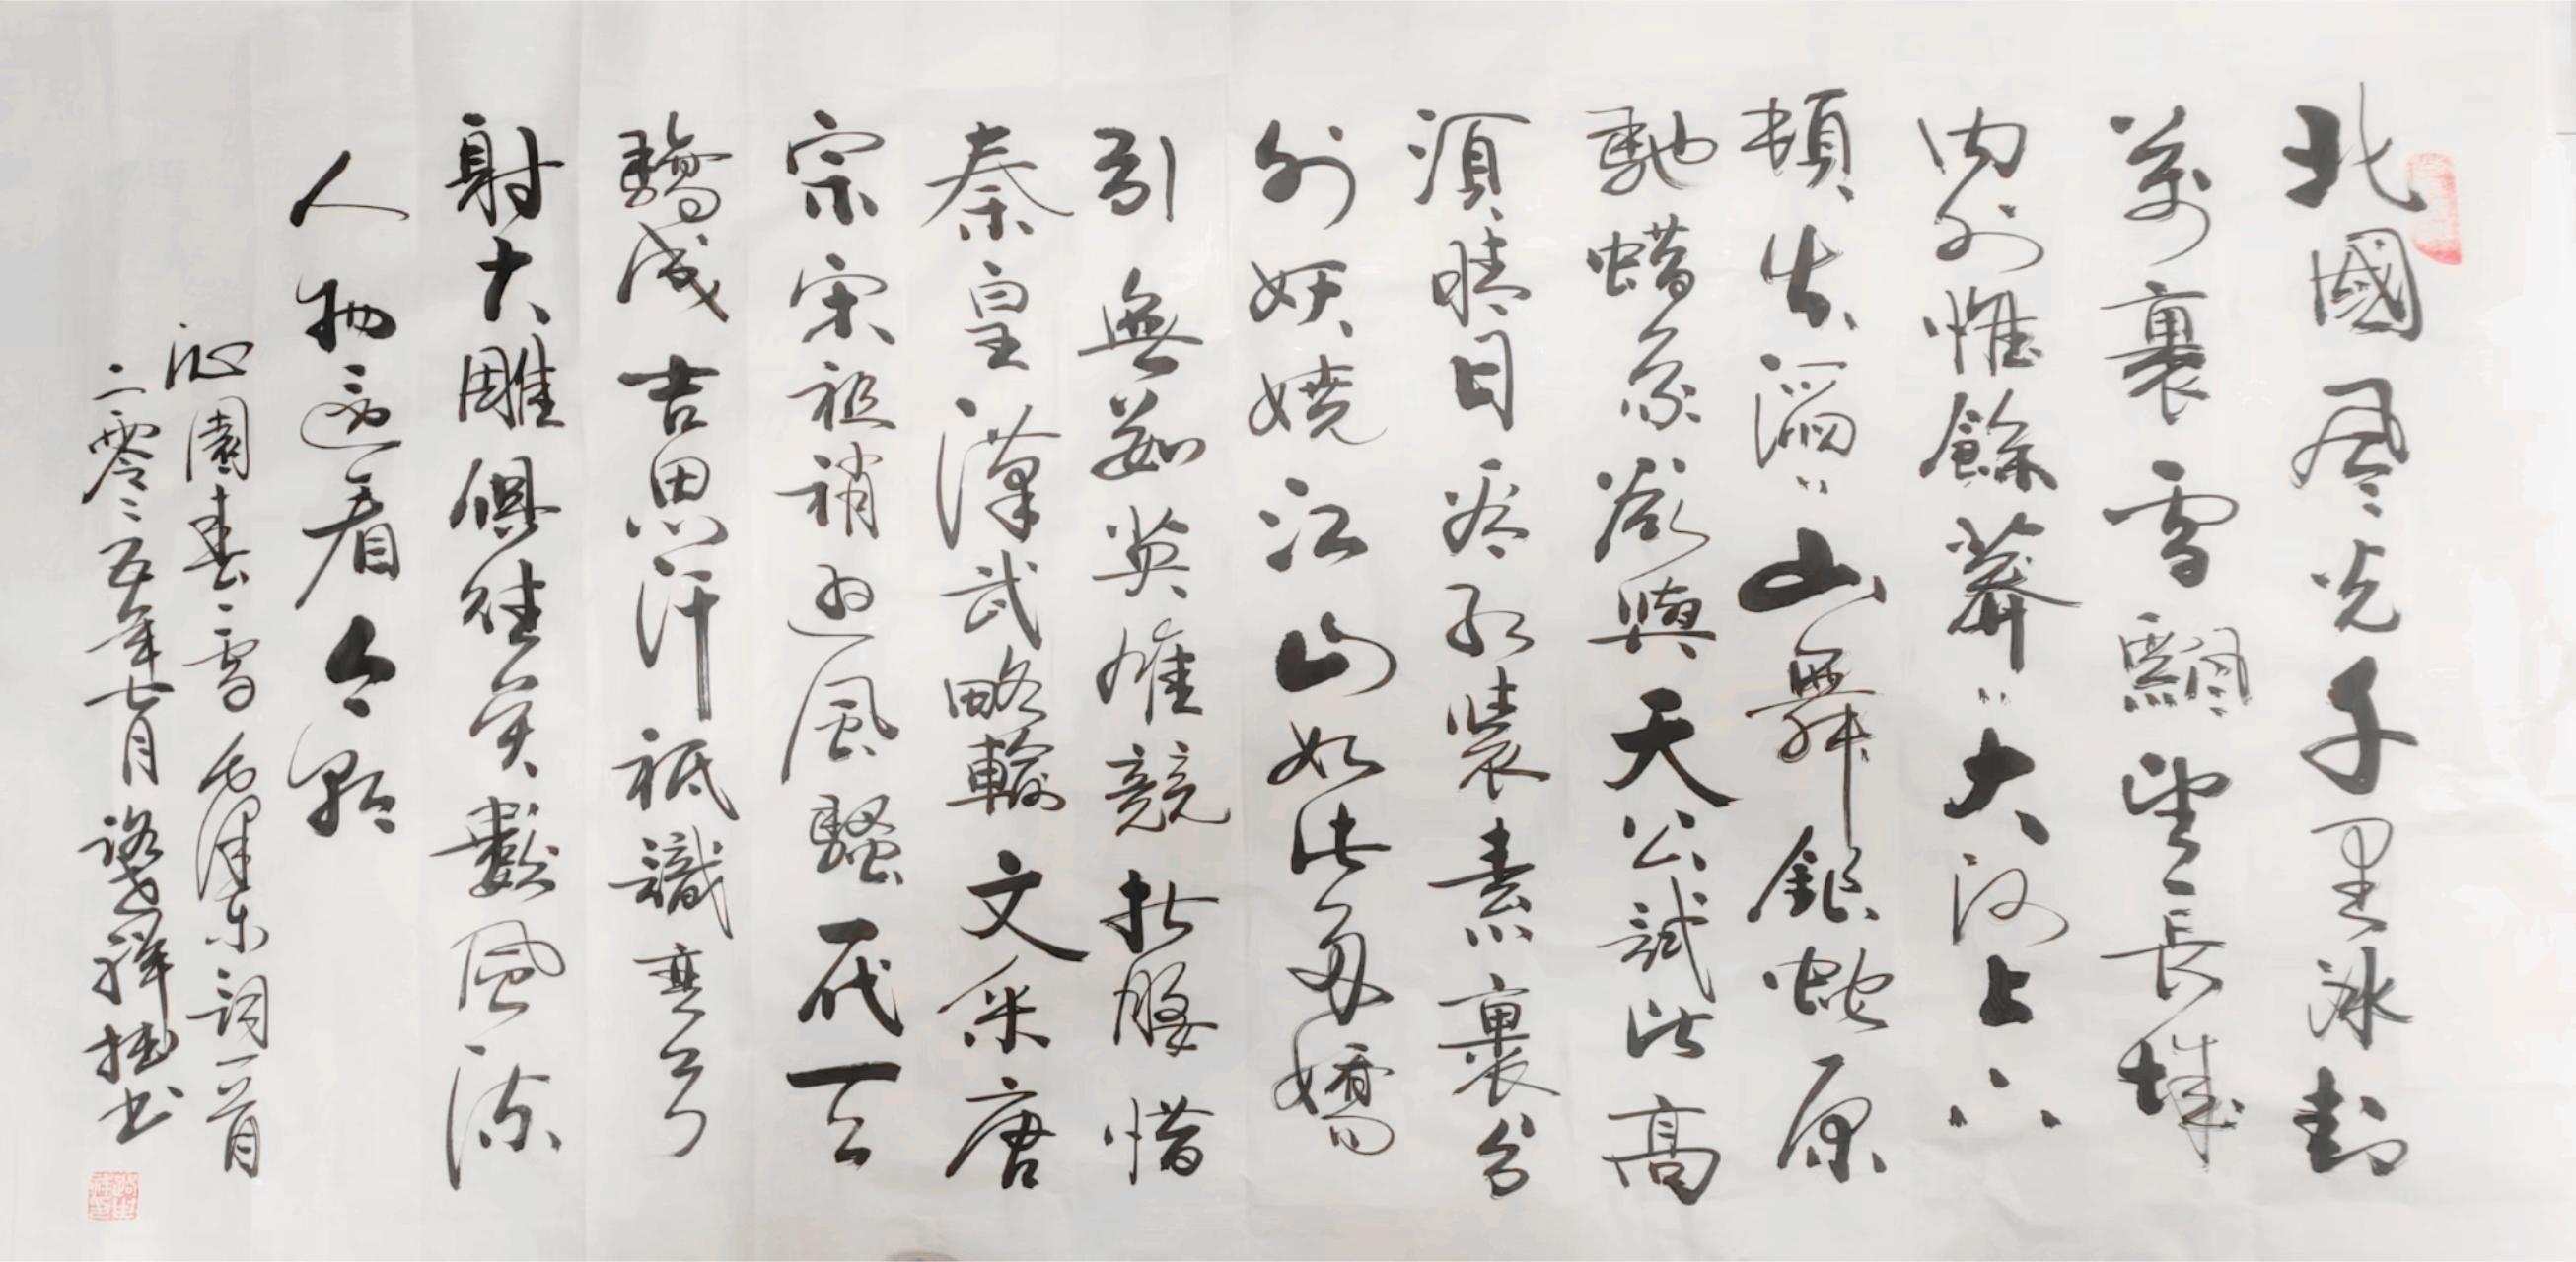 北國风光千里冰封
萬裏雪飄望長城
内外惟餘莽〻大河上下
頓失滔〻山舞銀蛇原
馳蜡象欲與天公試比高
須晴日看紅裝素裹分
外妖嬈江山如此多嬌
引無數英雄競折腰惜
秦皇漢武略輸文采唐
宗宋祖稍遜風騷一代天
驕成吉思汗祗識彎弓
射大雕俱往矣數風流
人物還看今朝
沁園春雪毛澤東詞一首
二零二五年七月祥拙書